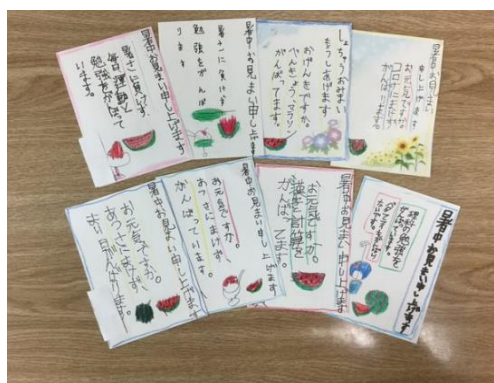 暑中お見まい申し上げます
暑さに負けず、
毎日運動と
勉強をがんばって
います。
暑中お見まい申し上げます
暑さに負けず
勉強をがんば
ります
しょちゅうおみまい
もうしあげます
おげんきですか。
べんきょう、マラソン
がんばってます。
暑中お見まい
申し上げます
お元気ですか。
コロナにまけずに
がんばります。
暑中お見まい申し上げます
お元気ですか。
あつさにまけず、
まい日がんばります。
暑中お見まい申し上げます
お元気ですか。
あつさにまけず、
がんばっています。
暑中お見まい申し上げます
お元気ですか。
漢字と計算を
がんばってます。
暑中お見まい申し上げます
理科の勉強を